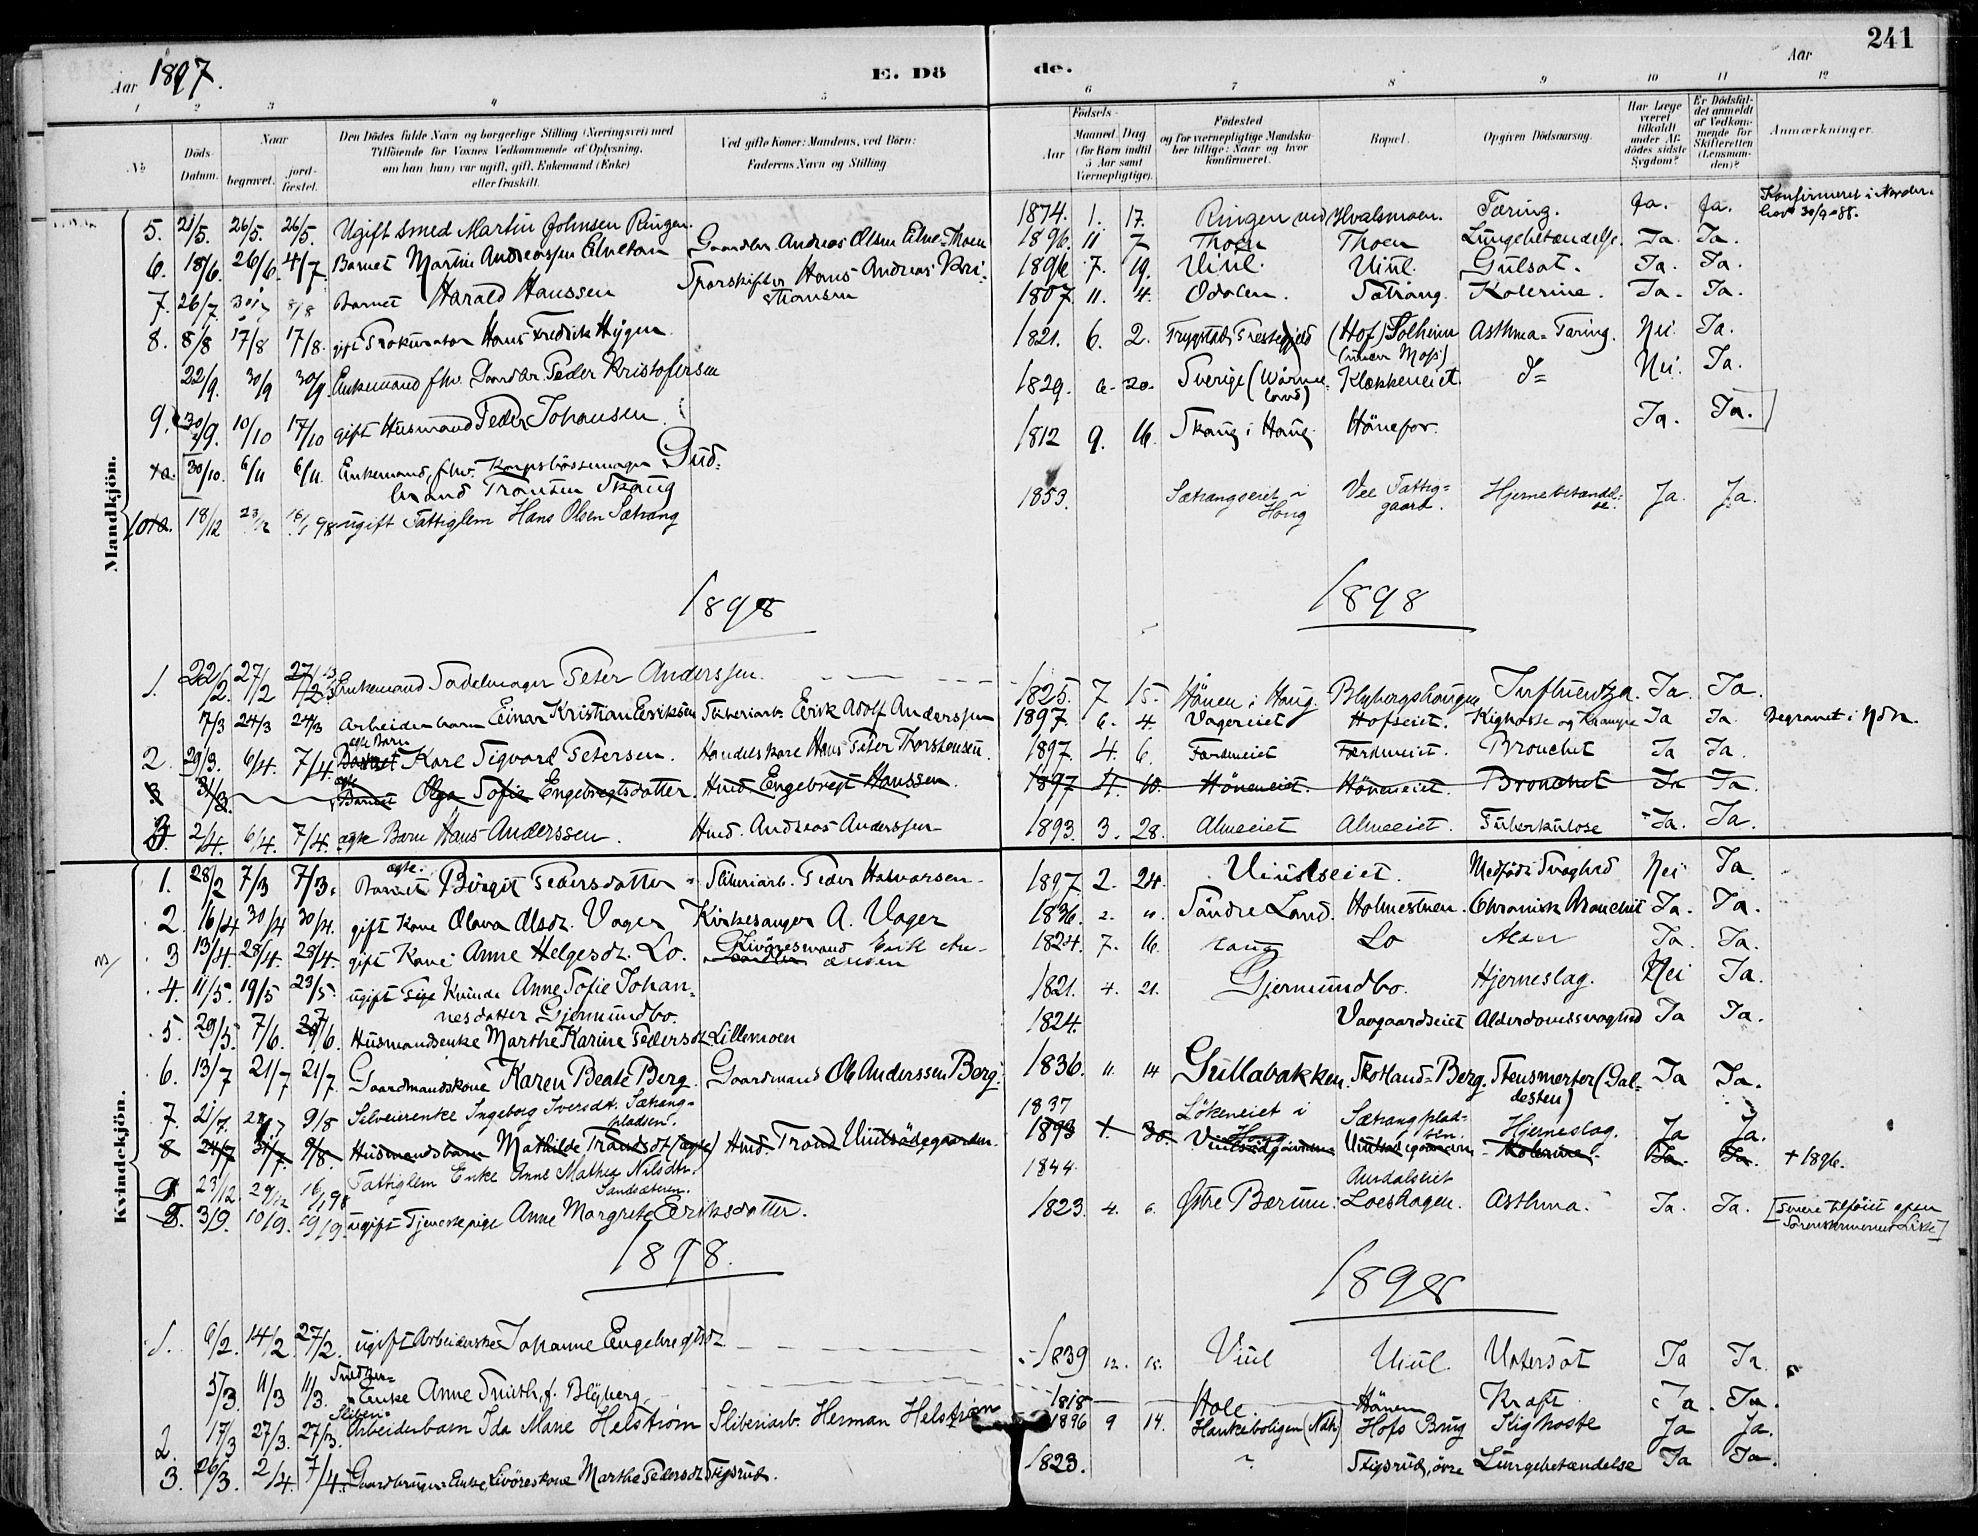 241
Aar 1897.
E. Dö de.
Aar
1 2 3 4 5 6 7 8 9 10 11 12
No
Döds-Datum.
Naar begravet. jordfæstet.
Den Dödes fulde Navn og borgerlige Stilling (Næringsvei) med
Tilföiende for Voxnes Vedkommende af Oplysning,
om han (hun) var ugift, gift, Enkemand (Enke)
eller fraskilt.
Ved gifte Koner: Mandens, ved Börn:
Faderens Navn og Stilling
Födsels-
Aar
Maaned Dag
(for Börn indtil
5 Aar samt
Værnepligtige).
Födested
og for værnepligtige Mandskaber tillige: Naar og hvor
konfirmeret.
Bopæl.
Opgiven Dödsaarsag.
Har Læge været tilkaldt under Afdödes sidste Sygdom?
Er Dödsfaldet anmeldt af Vedkommende for Skifteretten (Lensmanden)?
Anmærkninger.
Mandkjön.
5. 21/5. 26/5. 26/5. Ugift Smed Martin Johnsen Ringen. 1874. 1. 17. Ringen ved Hvalsmoen. Tæring. Ja. Ja. Konfirmeret i Norderhov 30/9 88.
6. 18/6. 26/6. 4/7. Barnet Martin Andreassen Elvetan Gaardbr. Andreas Olsen Elve-Thoen 1896. 11 7 Thoen Thoen Lungebetændelse. Ja. Ja.
7. 26/7. 8/8 Barnet Harald Hanssen Sporskifter Hans Andreas Kristiansen 1896 7. 19. Viul. Viul. Gulsot. Ja. Ja.
8. 8/8 17/8 17/8. gift Prokurator Hans Fredrik Hygen 1807. 11. 4. Odalen. Sætrang. Kolerine. Ja. Ja.
22/9. 30/9 30/9. Enkemand fhv. Gaardbr. Peder Kristofersen 1821. 6. 2. Trygstad Præstegjeld (Hof) Solheim (nær Moss) Asthma-Tæring. Nei. Ja.
9. 30/9. 10/10 17/10 gift Husmand Peder Johansen 1829. 20. Sverige (Wärmeland) Klækkeneiet. Nei. Ja.
30/10. 6/11 6/11. Enkemand, fhv. Korpsbössemager Gudbrand Tronsen Skaug 1812 9. 16. Skaug i Haug Hönefos. Ja. Ja.
18/12 23/12 16/1 98 ugift Fattiglem Hans Olsen Sætrang 1853. Sætrangseiet i Haug Vee Fattiggaard. Hjernebetændelse. Ja. Ja.
1898 1898
1. 22/2. 27/2 Enkemand Sadelmager Peter Anderssen. 1825. 7 15. Hönen i Haug. Blybergshaugen Influentza. Ja. Ja.
17/3 24/3 24/3 Arbeiderbarn Einar Kristian Eriksen Sliberiarb. Erik Adolf Anderssen 1897. 6. 4. Vagereiet Hofseiet. Kighoste og Krampe Ja Ja. Begravet i Ndh.
2. 29/3. 6/4. 7/4. ægte Barn Karl Sigvard Petersen. Handelskare Hans Peter Thorstensen 1897. 4. 6. Færdeneiet Færdeneiet. Bronchit Ja Ja.
3 31/3. Barnet Olga Sofie Engebregtsdatter. Husm. Engebregt Hanssen. 1897 4. 10. Höneneiet. Höneneiet. Bronchit Ja Ja.
3. 2/4. 6/4. 7/4. ægte Barn Hans Anderssen. Husm. Andreas Anderssen 1893. 3. 28. Almeeiet Almeeiet. Tuberkulose Ja. Ja.
Kvindekjön.
1. 28/2 7/3 7/3. ægte. Barnet Birgit Pedersdatter Sliberiarb. Peder Halvorsen 1897 2. 24. Viulseiet. Medfödt Svaghed Nei Ja.
2. 16/4 30/4 30/4. gift Kone Olava Olsdr. Vager Kirkesanger A. Vager 1836. Söndre Land. Holmestuen. Chronisk Bronchit Ja. Ja.
3 13/4. 28/4. 28/4. gift Kone Anne Helgesdr. Lo. Livöresmand Erik 1824. 7. 16. Haug Lo Alder Ja. Ja.
4. 11/5. 19/5 23/5. ugift Pige Kvinde Anne Sofie Johannesdatter Gjermundbo. 1821. 4. 21. Gjermundbo. Hjerneslag. Nei Ja.
5. 29/5. 7/6. Husmandsenke Marthe Karine Pedersdr. Lillemoen 1824. Vaagaardseiet Alderdomssvaghed Ja Ja.
6. 13/7 21/7 21/7. Gaardmandskone Karen Beate Berg Gaardmand Ole Anderssen Berg. 1836. 11. 14 Gullabakken. Skotland-Berg. Stensmerter (Galdesten) Ja Ja.
7. 21/7. 9/8 Selveierenke Ingeborg Iversdt. Sætrangpladsen. 1837 Lökeneiet i Haug Sætrangpladsen. Hjerneslag. Ja Ja.
8 24/7 9/8. Husmandsbarn Mathilde Trondsdt. (ægte) Husm. Trond Viulsödegaarden. 1893 Kolerine. Ja. Ja. + 1896.
9 23/12. 29/12 16/1 98 Fattiglem Enke Anne Mathea Nilsdtr. Sandsæteren. 1844. Aurdalseiet
8. 3/9. 10/9. 19/9. ugift Tjenestepige Anne Margrete Eriksdatter. 1823. 4. 6. Østre Bærum. Loeshagen. Asthma. Ja. Ja. [Senere tilföiet efter Sorenskriverens Liste]
1898. 1898
1. 6/2. 14/2 27/2. ugift Arbeiderske Johanne Engebregtsdr. 1839 12. 15. Viul Viul. Vatersot Ja Ja.
5/3. 11/3 11/3. Snedker-Enke Anne Smith, f. Blyberg 1818 Hole Hönen Kræft Ja. Ja.
2. 17/3 27/3. 27/3. Sliberi-Arbeiderbarn Ida Marie Helström Sliberiarb. Herman Helström 1896 9 14. Hankeboligen (Ndh.) Hofs Brug Kighoste Ja Ja.
3. 26/3. 2/4. 7/4. Gaardbruger-Enke, Livöreskone Marthe Pedersdt. Stigsrud. 1823. " Stigsrud, övre Lungebetændelse Ja Ja.